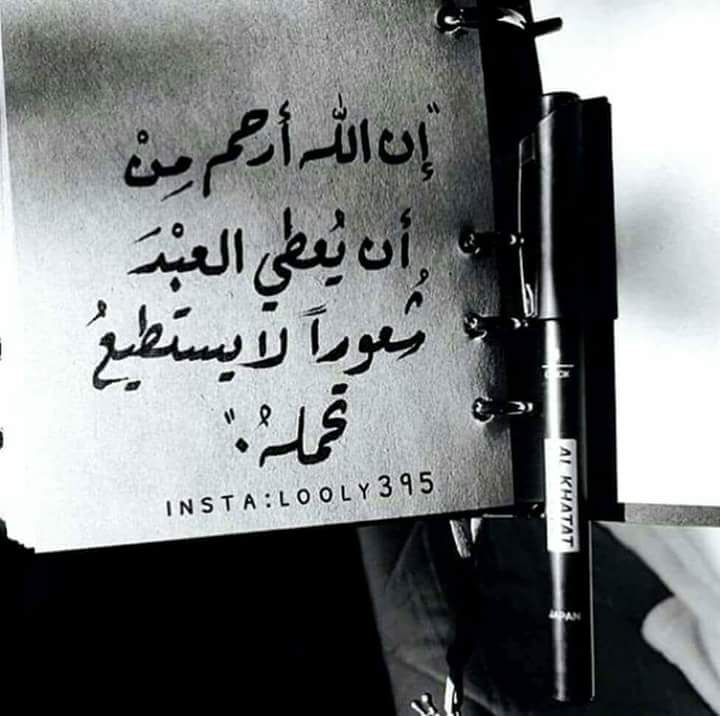 "إن الله أرحم مِنْ
أن يُعطي العبْدَ
شُعوراً لا يستطيعُ
تحملهُ."
INSTA:LOOLY395
AL KHATAT
JAPAN